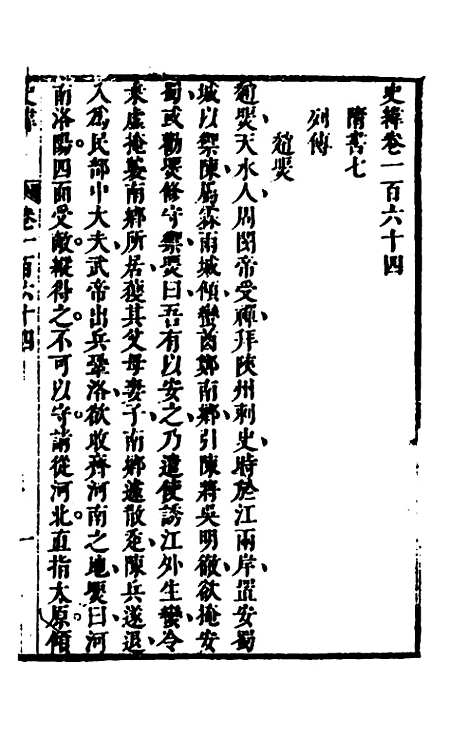 史緯卷一百六十四
隋書七
列傳
趙煚
趙煚天水人周閔帝受禪拜陝州刺史時於江兩岸置安蜀
城以禦陳屬霖雨城傾蠻酋鄭南鄉引陳將吳明徹欲掩安
蜀或勸煚修守禦煚曰吾有以安之乃遣使誘江外生蠻令
乘虛掩襲南鄉所居獲其父母妻子南鄉遂散走陳兵遂退
入為民部中大夫武帝出兵鞏洛欲收齊河南之地煚曰河
南洛陽四面受敵縱得之不可以守請從河北直指太原傾
史緯 卷一百六十四 一